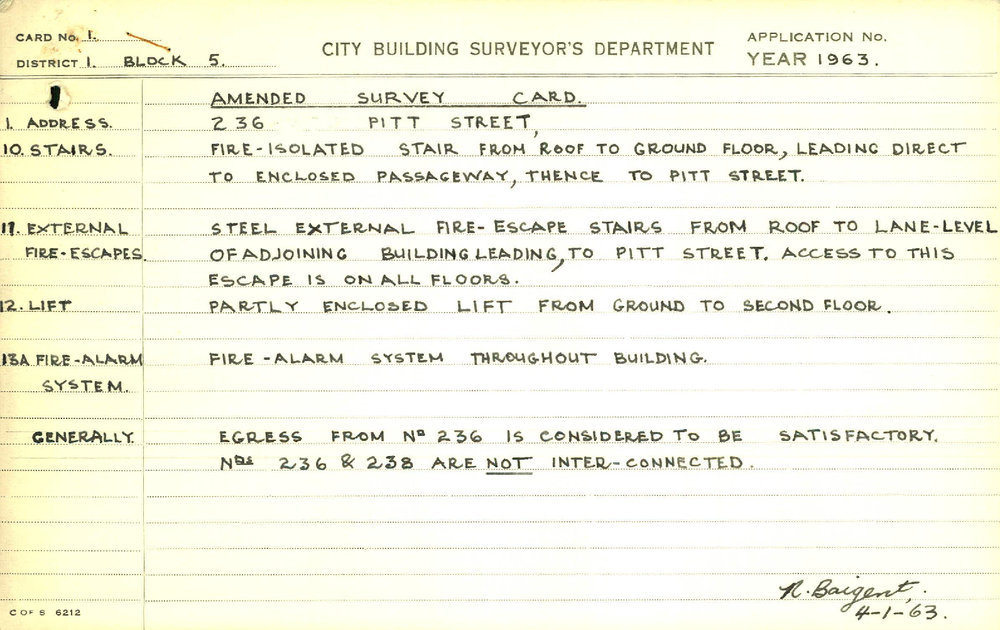 CARD No. 1.
DISTRICT 1. BLOCK 5.
CITY BUILDING SURVEYOR'S DEPARTMENT
APPLICATION No.
YEAR 1963.
AMENDED SURVEY CARD.
1. ADDRESS. 236 PITT STREET,
10. STAIRS. FIRE-ISOLATED STAIR FROM ROOF TO GROUND FLOOR, LEADING DIRECT
TO ENCLOSED PASSAGEWAY, THENCE TO PITT STREET.
11. EXTERNAL STEEL EXTERNAL FIRE-ESCAPE STAIRS FROM ROOF TO LANE-LEVEL
FIRE-ESCAPES. OF ADJOINING BUILDING LEADING, TO PITT STREET. ACCESS TO THIS
ESCAPE IS ON ALL FLOORS.
12. LIFT PARTLY ENCLOSED LIFT FROM GROUND TO SECOND FLOOR.
13A FIRE-ALARM FIRE-ALARM SYSTEM THROUGHOUT BUILDING.
SYSTEM.
GENERALLY. EGRESS FROM No 236 IS CONSIDERED TO BE SATISFACTORY.
Nos 236 & 238 ARE NOT INTER-CONNECTED.
R. Baigent,.
4-1-63.
C OF S 6212